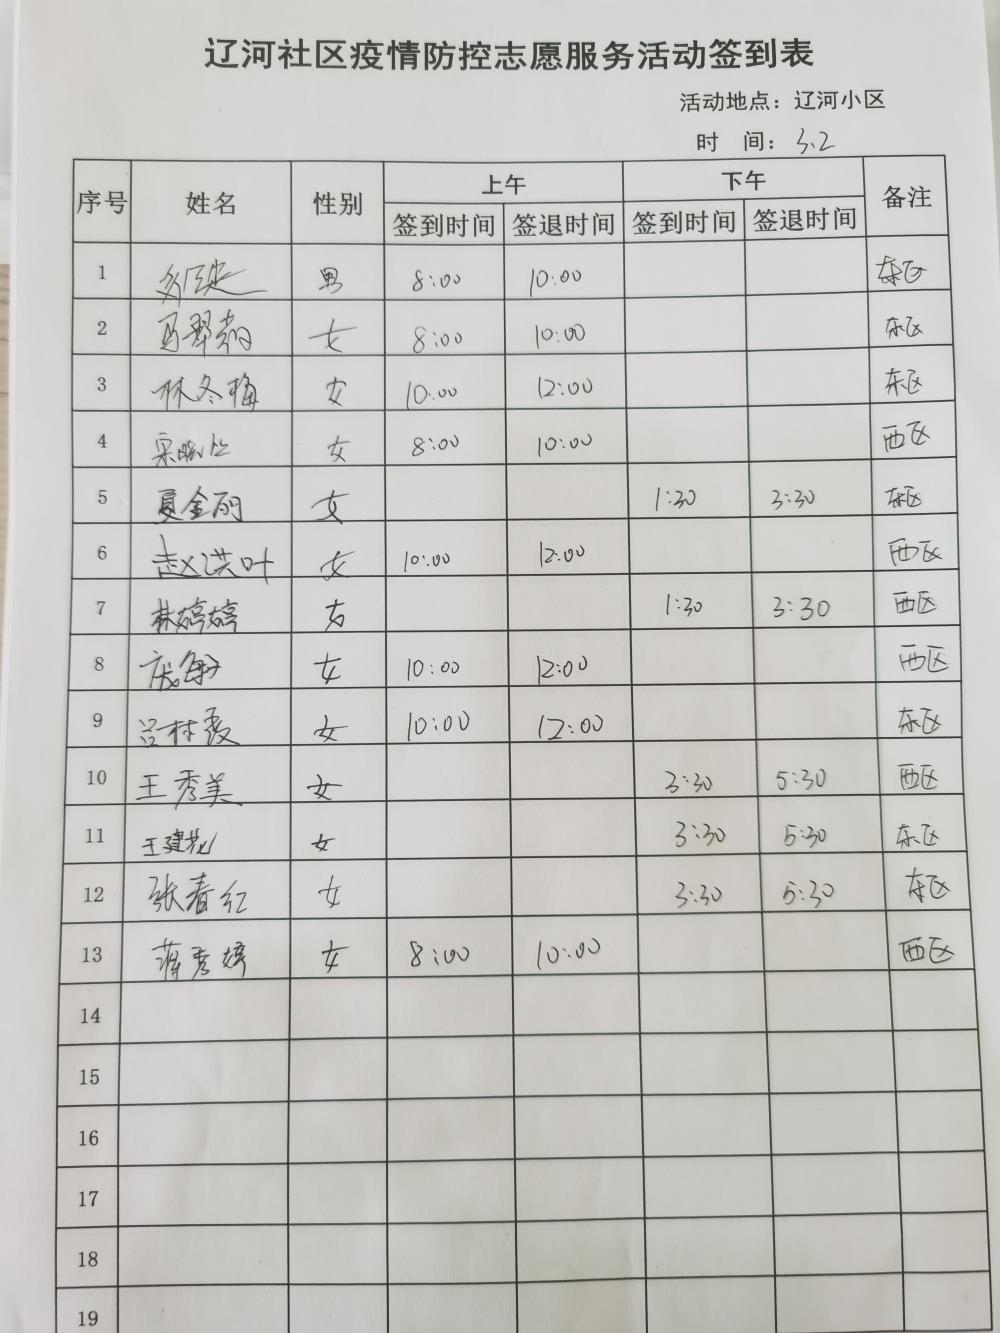 辽河社区疫情防控志愿服务活动签到表
活动地点：辽河小区
时 间：3.2
序号 姓名 性别 上午 下午 备注
签到时间 签退时间 签到时间 签退时间
1 男 8:00 10:00 东区
2 女 8:00 10:00 东区
3 林冬梅 女 10:00 12:00 东区
4 女 8:00 10:00 西区
5 夏金丽 女 1:30 3:30 东区
6 赵洪叶 女 10:00 12:00 西区
7 林婷婷 女 1:30 3:30 西区
8 庞敏 女 10:00 12:00 西区
9 吕林霞 女 10:00 12:00 东区
10 王秀美 女 3:30 5:30 西区
11 王建花 女 3:30 5:30 东区
12 张春红 女 3:30 5:30 东区
13 蒋秀婷 女 8:00 10:00 西区
14
15
16
17
18
19